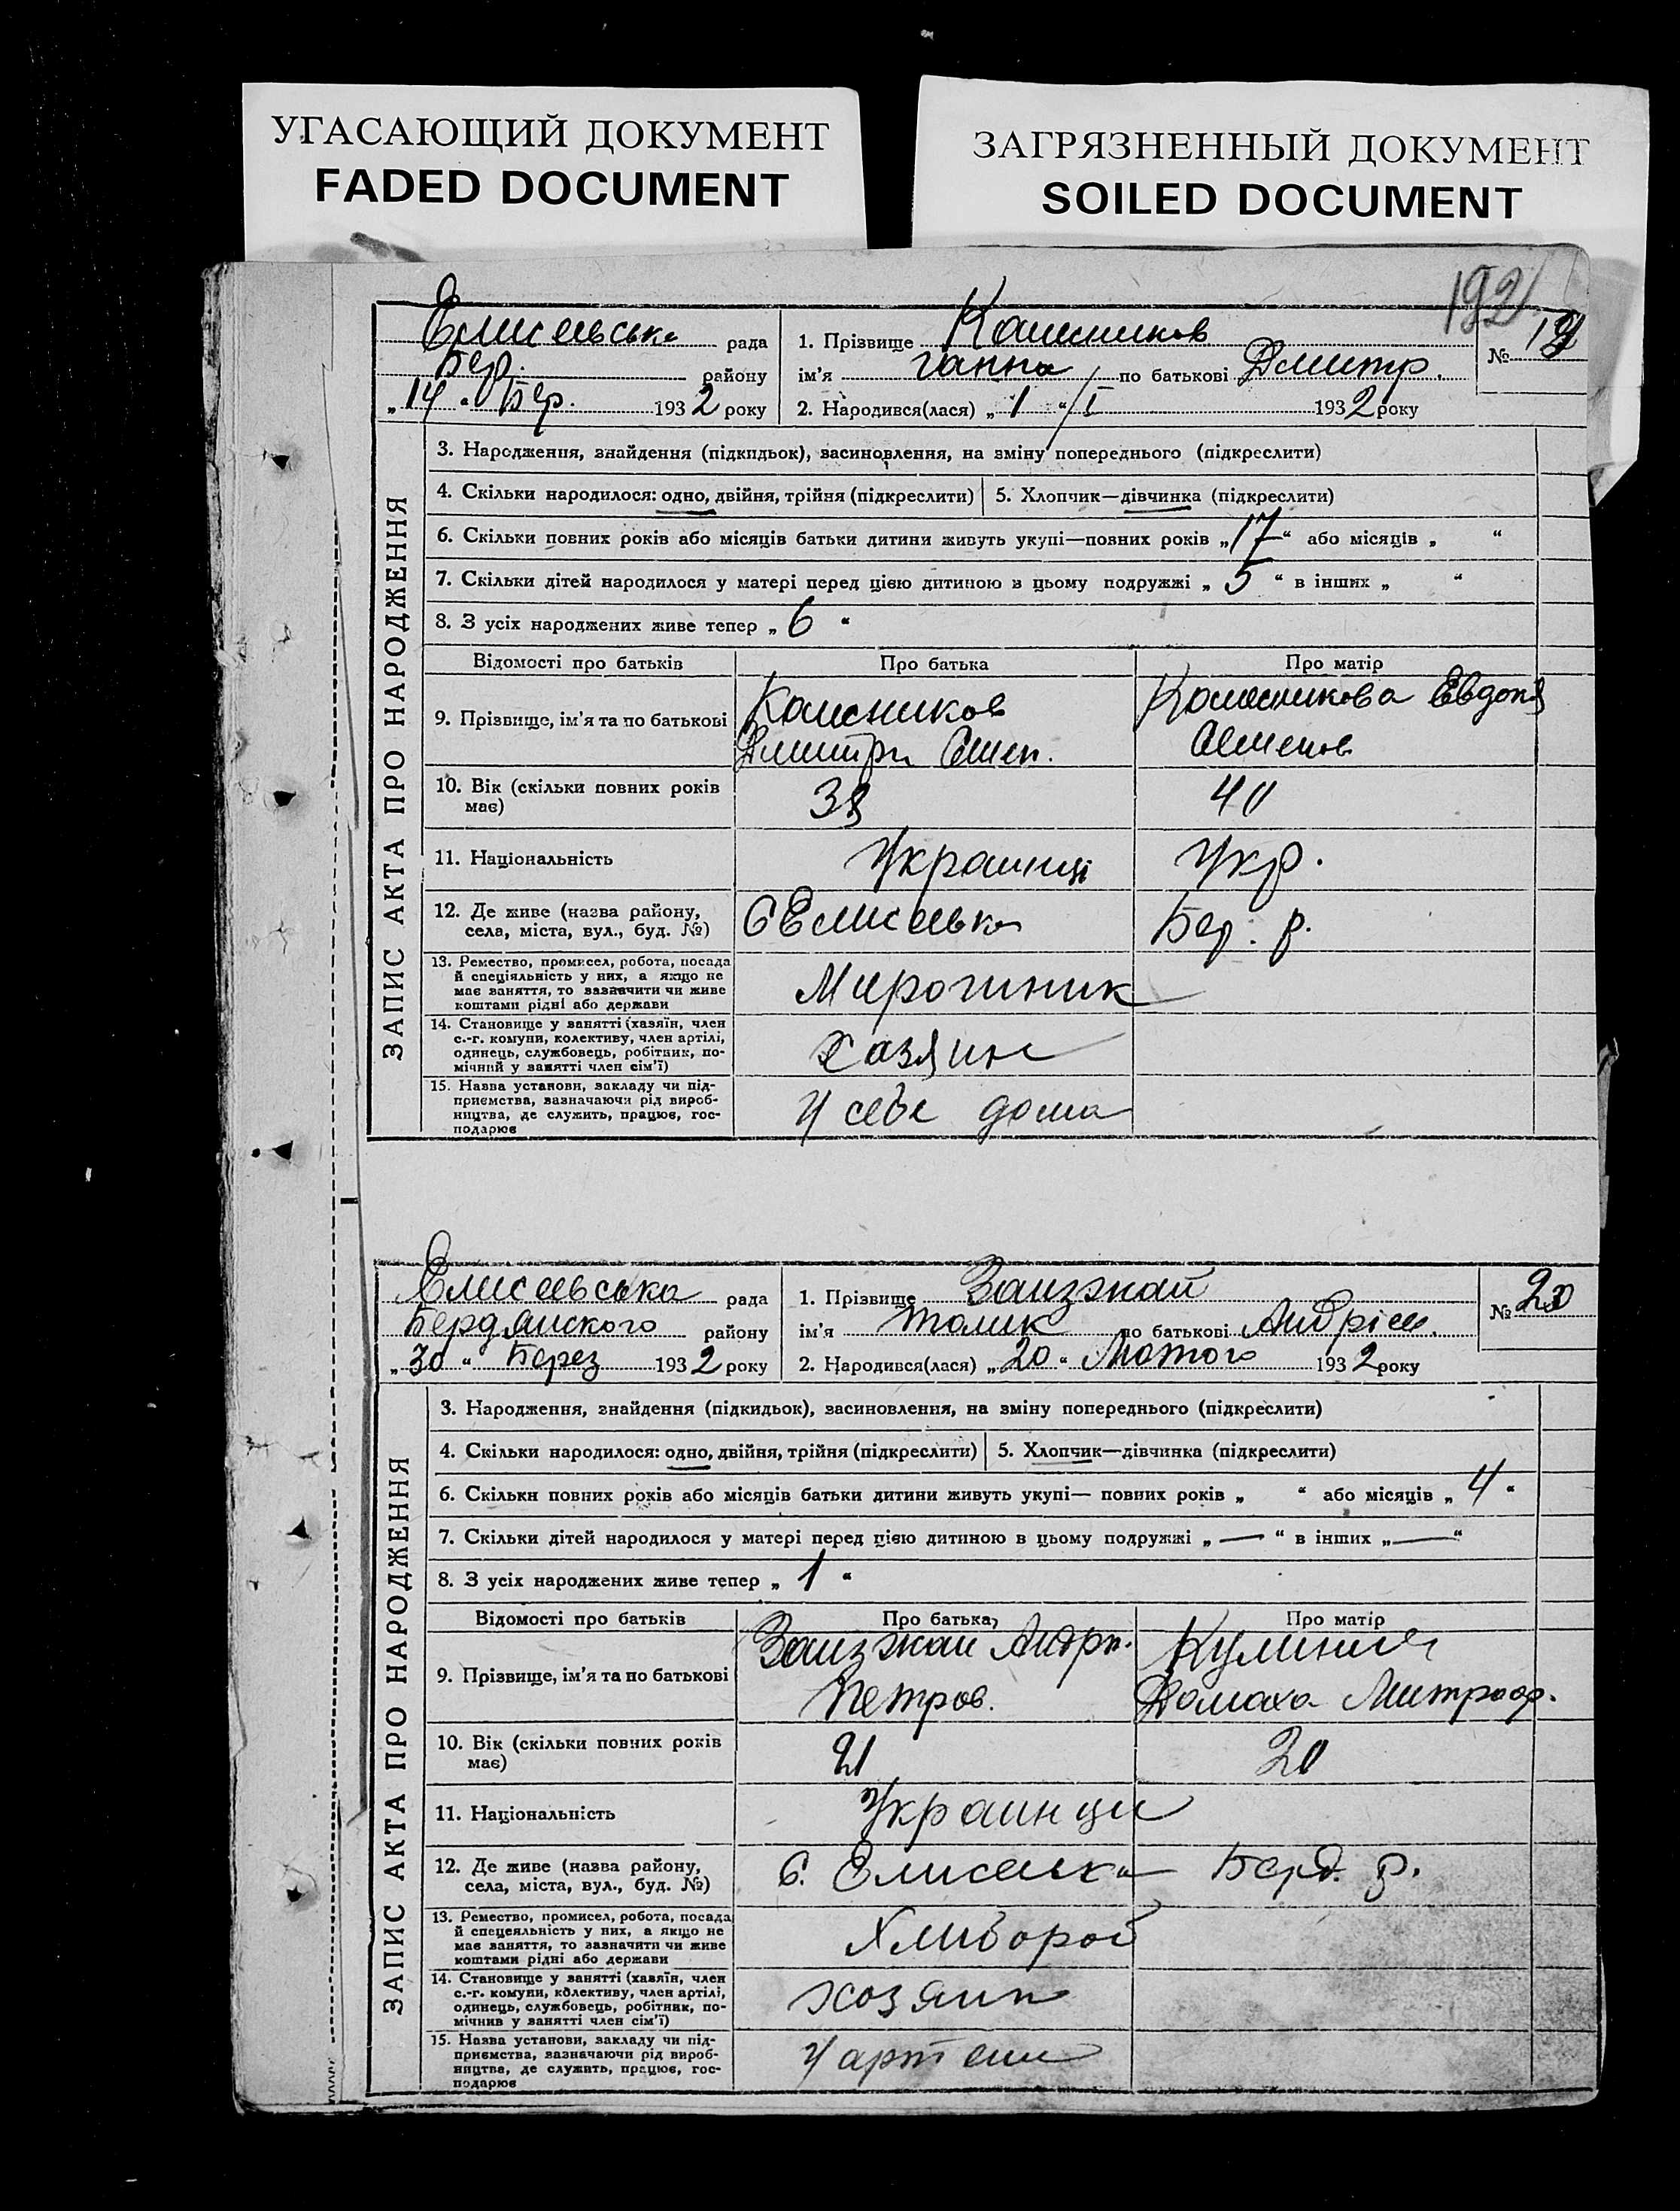 УГАСАЮЩИЙ ДОКУМЕНТ
FADED DOCUMENT
ЗАГРЯЗНЕННЫЙ ДОКУМЕНТ
SOILED DOCUMENT
192
Елисеевська рада
Бер. району
„14“ Бер. 1932 року
1. Прізвище Колисников
ім’я Ганна по батькові Дмитр.
2. Народився(лася) „1“/I 1932 року
№ 19
ЗАПИС АКТА ПРО НАРОДЖЕННЯ
3. Народження, знайдення (підкидьок), засиновлення, на зміну попереднього (підкреслити)
4. Скільки народилося: одно, двійня, трійня (підкреслити) 5. Хлопчик—дівчинка (підкреслити)
6. Скільки повних років або місяців батьки дитини живуть укупі—повних років „17“ або місяців „ “
7. Скільки дітей народилося у матері перед цією дитиною в цьому подружжі „5“ в інших „ “
8. З усіх народжених живе тепер „6“
Відомості про батьків Про батька Про матір
9. Прізвище, ім’я та по батькові
Колисников
Дмитри Семен.
Колисникова Евдокя
Семенов
10. Вік (скільки повних років
має)
38 40
11. Національність Украинці Укр.
12. Де живе (назва району,
села, міста, вул., буд. №)
С Елисеевка Бер. р.
13. Ремество, промисел, робота, посада
й спеціяльність у них, а якщо не
має заняття, то зазначити чи живе
коштами рідні або держави
Мирошник
14. Становище у занятті (хазяїн, член
с.-г. комуни, колективу, член артілі,
одинець, службовець, робітник, по-
мічний у занятті член сім’ї)
Хазяин
15. Назва установи, закладу чи під-
приємства, зазначаючи рід вироб-
ництва, де служить, працює, гос-
подарює
У себе дома
Елисеевська рада
Бердянского району
„30“ Берез 1932 року
1. Прізвище Заизжай
ім’я Толик по батькові Андріев.
2. Народився(лася) „20“ Лютого 1932 року
№ 20
ЗАПИС АКТА ПРО НАРОДЖЕННЯ
3. Народження, знайдення (підкидьок), засиновлення, на зміну попереднього (підкреслити)
4. Скільки народилося: одно, двійня, трійня (підкреслити) 5. Хлопчик—дівчинка (підкреслити)
6. Скільки повних років або місяців батьки дитини живуть укупі— повних років „ “ або місяців „4“
7. Скільки дітей народилося у матері перед цією дитиною в цьому подружжі „—“ в інших „—“
8. З усіх народжених живе тепер „1“
Відомості про батьків Про батька Про матір
9. Прізвище, ім’я та по батькові
Заизжаи Андри.
Петров.
Домаха Митроф.
10. Вік (скільки повних років
має)
21 20
11. Національність Украинци
12. Де живе (назва району,
села, міста, вул., буд. №)
С. Елисеевка Берд. р.
13. Ремество, промисел, робота, посада
й спецеяльність у них, а якщо не
має заняття, то зазначити чи живе
коштами рідні або держави
Хлибороб
14. Становище у занятті (хазяїн, член
с.-г. комуни, колективу, член артілі,
одинець, службовець, робітник, по-
мічнив у занятті член сім’ї)
Хозяин
15. Назва установи, закладу чи під-
приємства, зазначаючи рід вироб-
ництва, де служить, працює, гос-
подарює
У артели